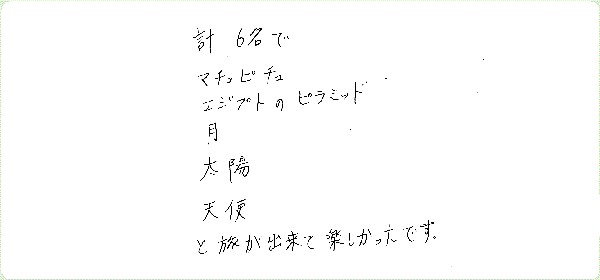 計 6名で
マチュピチュ
エジプトのピラミッド
月
太陽
天使
と旅が出来て楽しかったです。